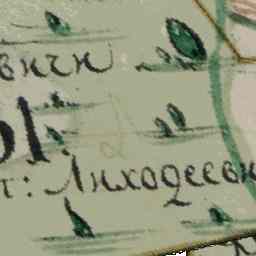 вичи
ы:
т: Лиходеевк